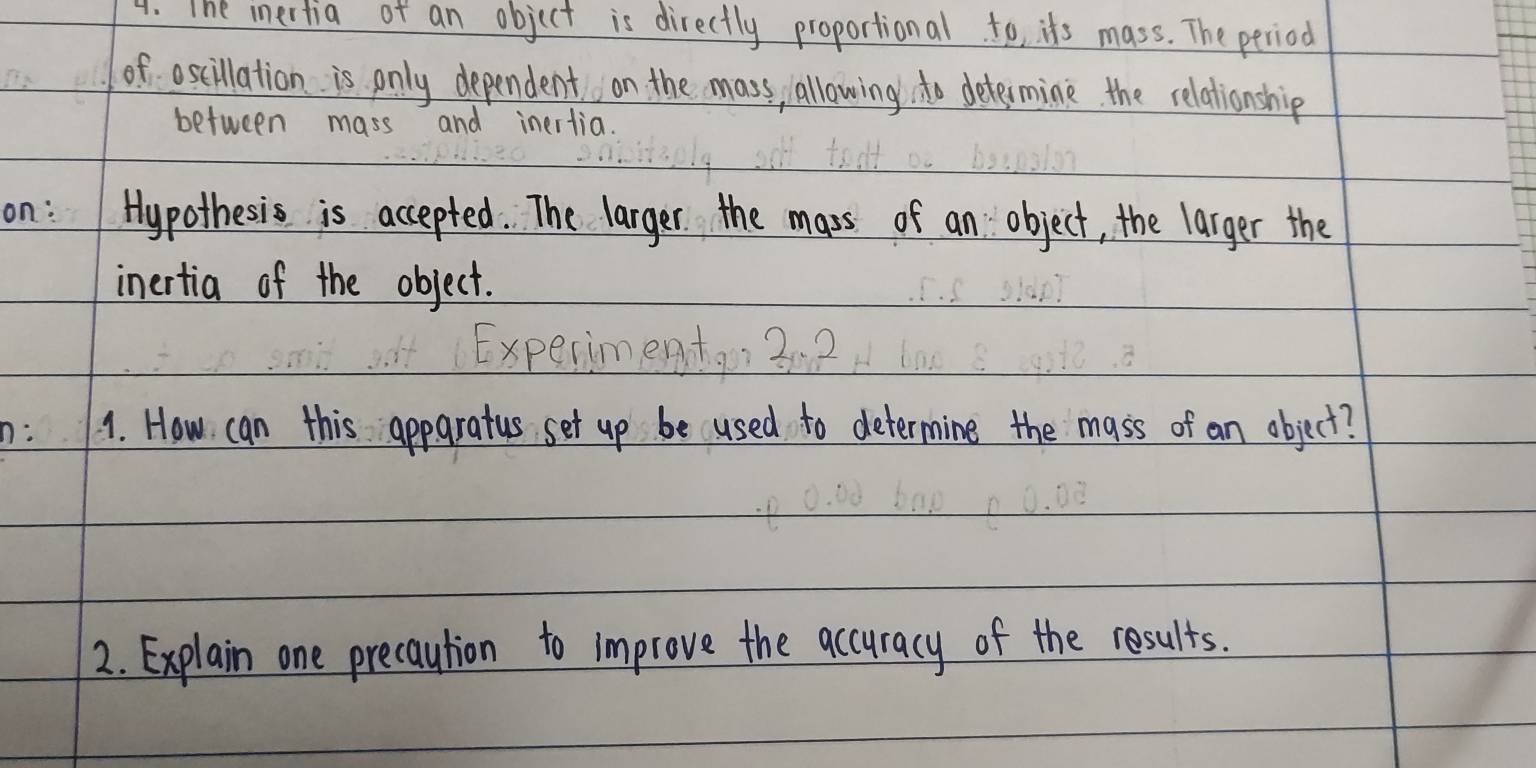 4. The inertia of an object is directly proportional to its mass. The period
of oscillation is only dependent on the mass, allowing to determine the relationship
between mass and inertia.
on: Hypothesis is accepted. The larger the mass of an object, the larger the
inertia of the object.
Experiment 2.2
n: 1. How can this apparatus set up be used to determine the mass of an object?
2. Explain one precaution to improve the accuracy of the results.